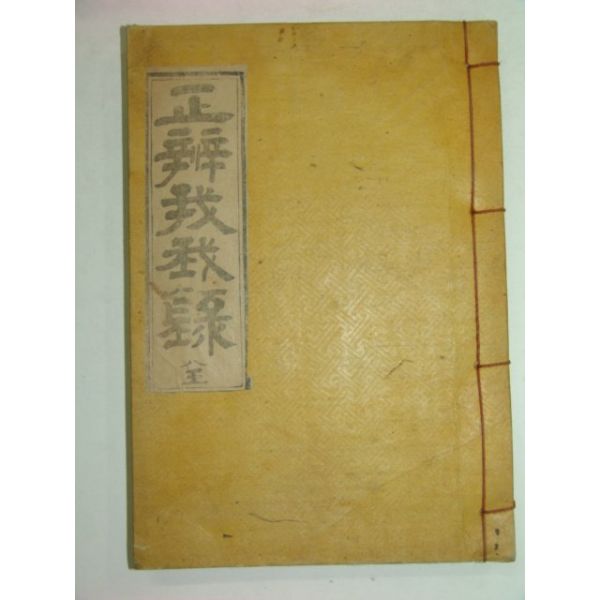 正辨我我錄
全